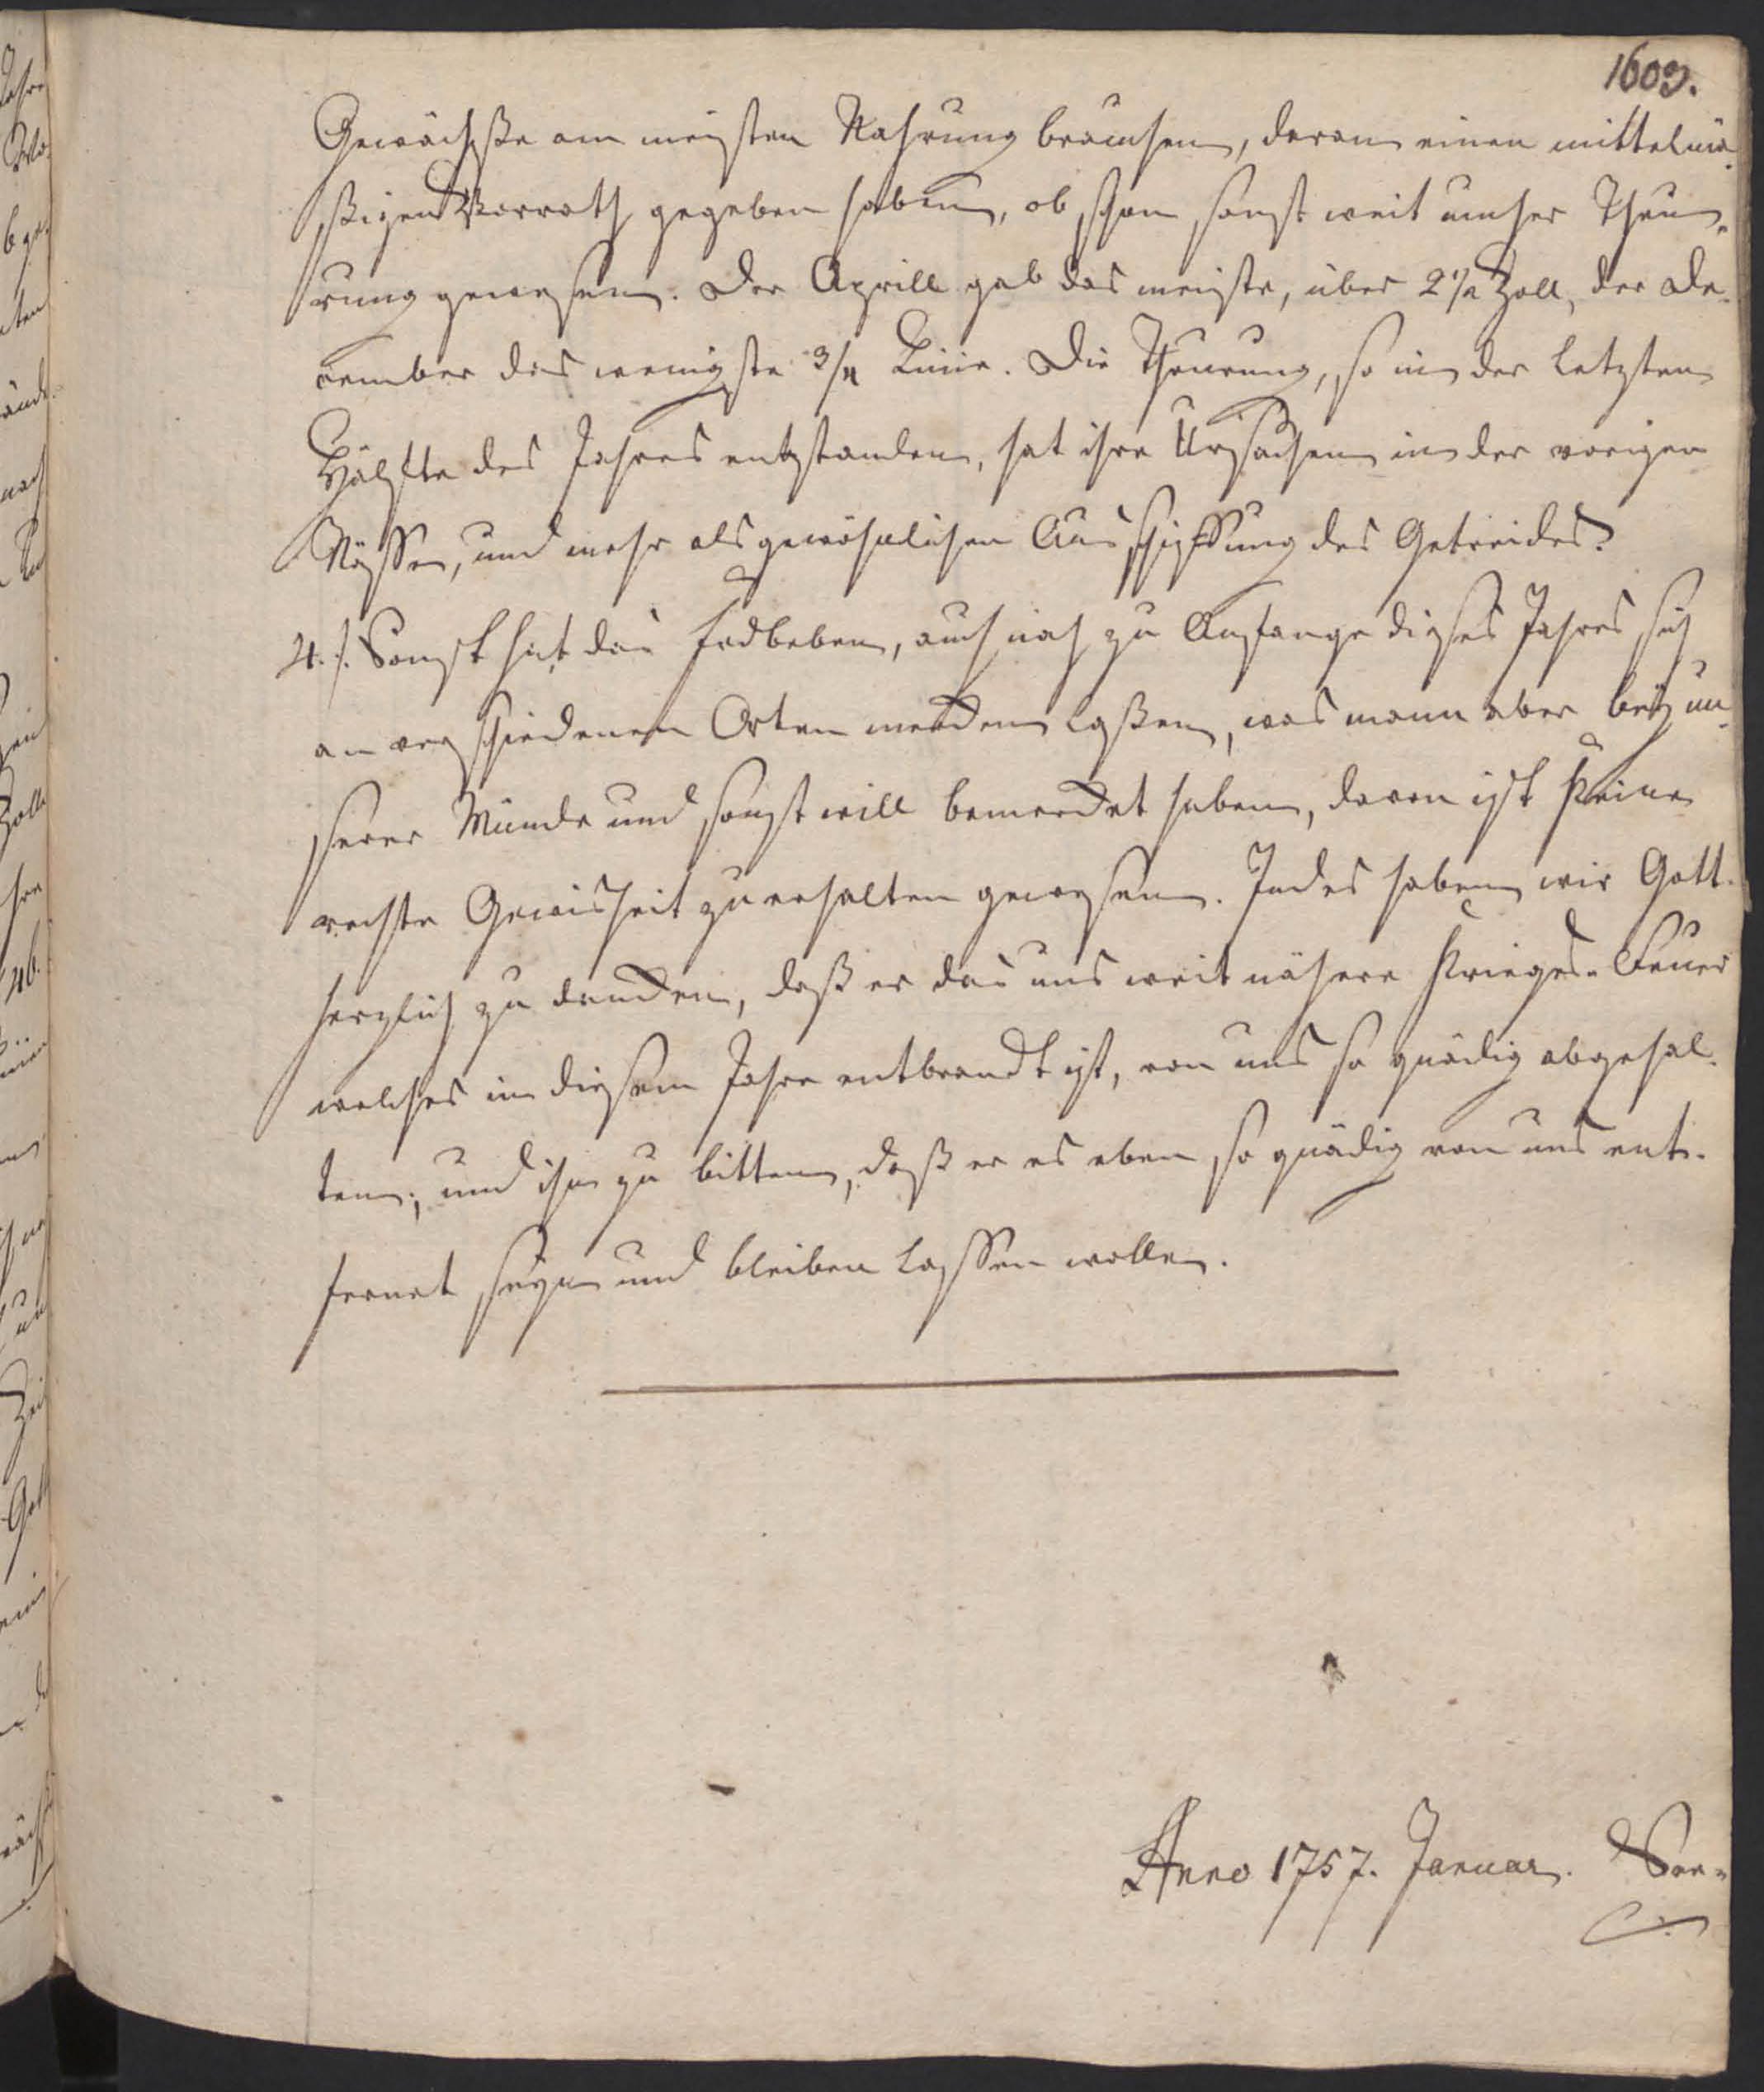 1609.
Gewächße am meisten Nahrung brauchen, daran einen mittelmä-
ßigen Vorrath gegeben haben, ob schon sonst weit umher Theu-
rung gewesen. Der Aprill gab das meiste, über 2 1/2 Zoll, der De-
cember das wenigste 3/4 Linie. Die Theurung, so in der letzten
Hälfte des Jahres entstanden, hat ihre Ursachen in der vorigen
Nässe, und mehr als gewöhnlichen Ausschiffung des Getreides.
4.). Sonst hat das Erdbeben, auch noch zu Anfange dieses Jahres sich
an verschiedenen Orten mercken laßen, was mann aber bey un-
serer Münde und sonst will bemercket haben, davon ist keine
rechte Gewisheit zu erhalten gewesen. Indes haben wir Gott
herzlich zu dancken, daß er das uns weit nähere Krieges-Feuer
welches in diesem Jahre entbrandt ist, von uns so gnädig abgehal-
ten; und ihn zu bitten, daß er es eben so gnädig von uns ent-
fernet seyn und bleiben lassen wolle.
Anno 1757. Januar.